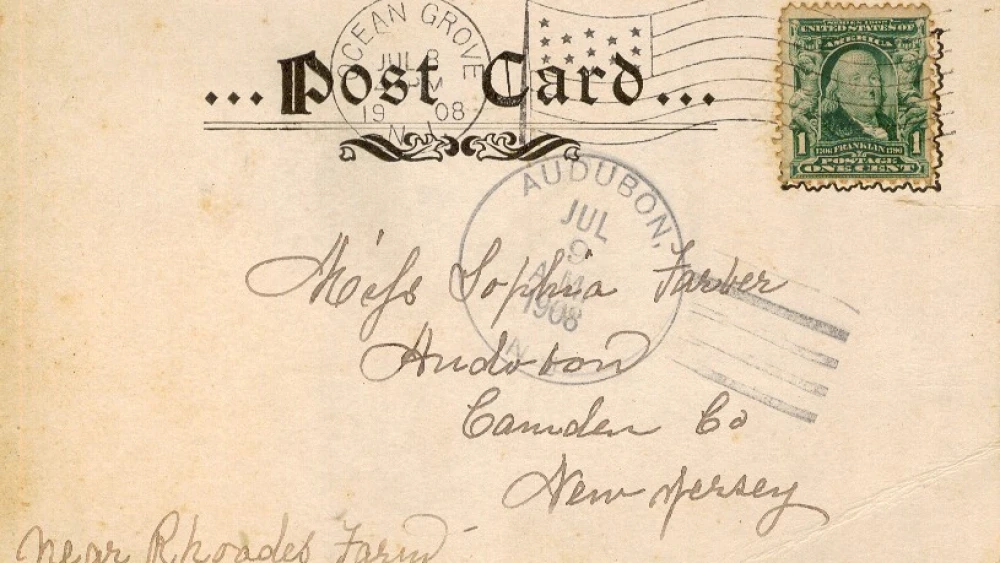 OCEAN GROVE
JUL 8
PM
19 08
N.J.
...Post Card...
SERIES 1902
UNITED STATES OF
AMERICA
1706 FRANKLIN 1790
1 1
POSTAGE
ONE CENT
AUDUBON,
JUL
9
A.M.
1908
N
Miss Sophia Farber
Audobon
Camden Co
New Jersey
near Rhoades Farm